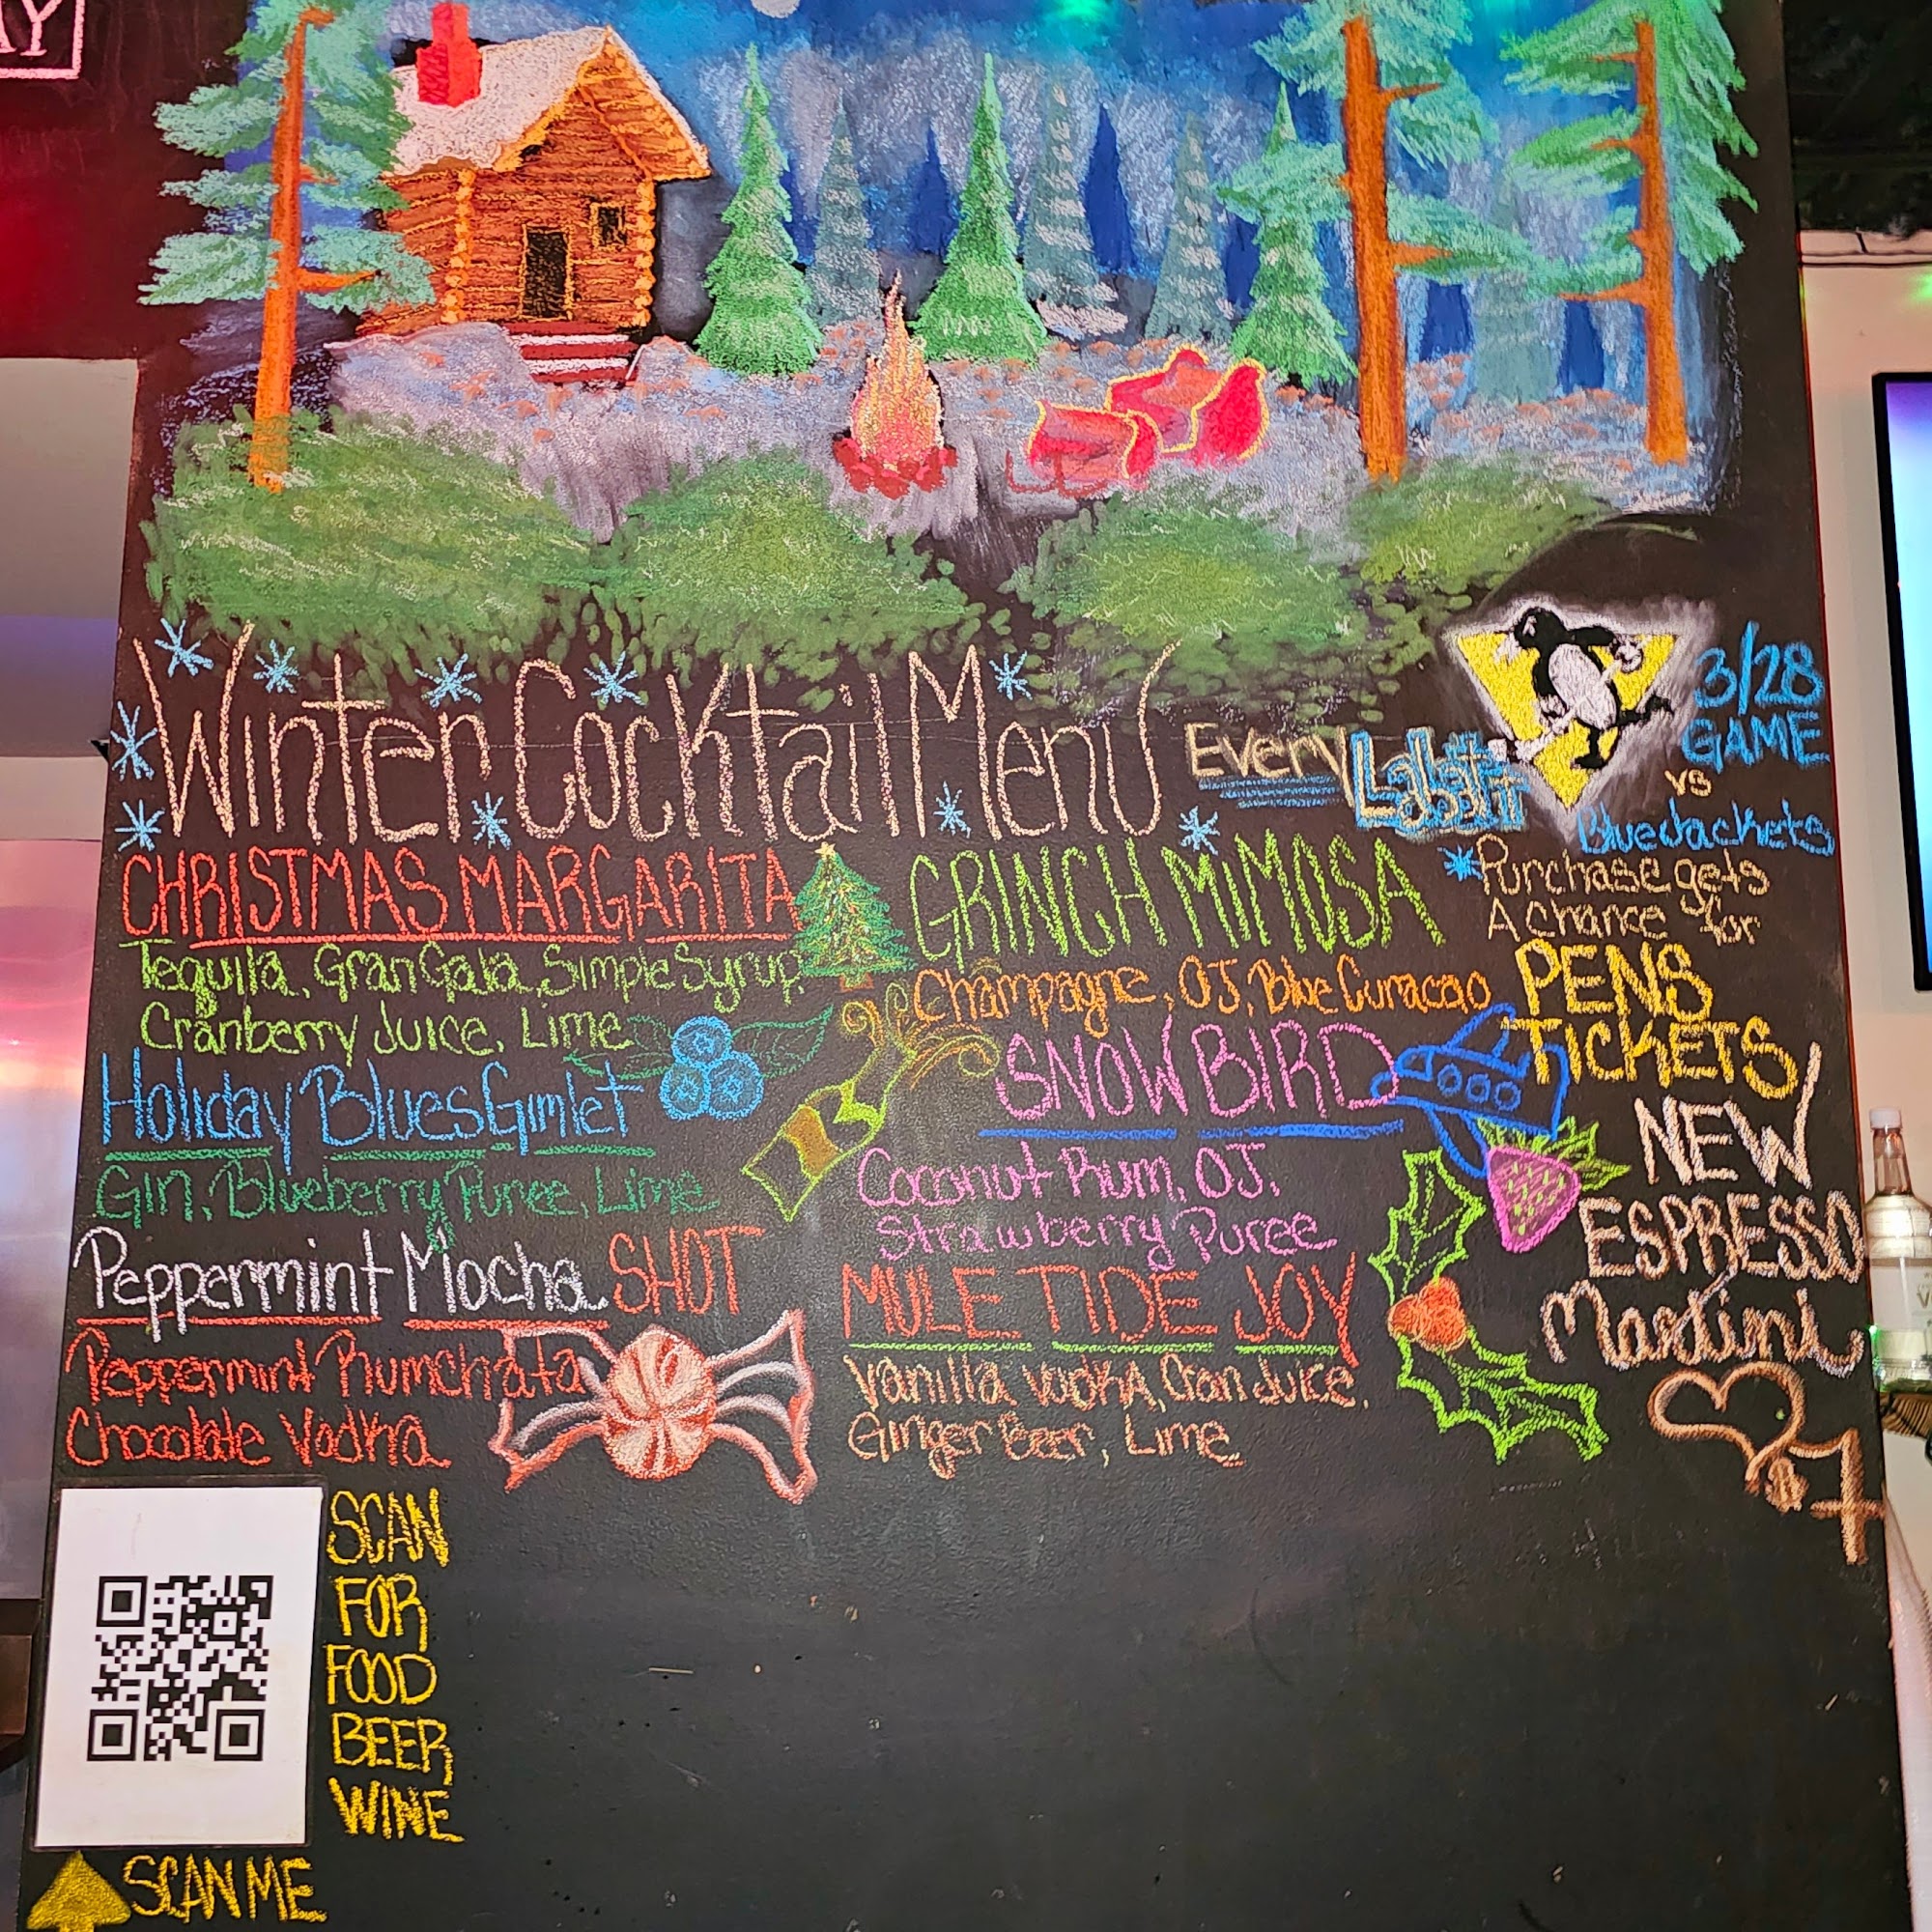 AY
Winter Cocktail Menu
CHRISTMAS MARGARITA
Tequila, Gran Gala, Simple Syrup,
Cranberry Juice, Lime
Holiday Blues Gimlet
Gin, Blueberry Puree, Lime
Peppermint Mocha SHOT
Peppermint Rumchata
Chocolate Vodka
GRINCH MIMOSA
Champagne, OJ, Blue Curacao
SNOW BIRD
Coconut Rum, OJ,
Strawberry Puree
MULE TIDE JOY
Vanilla Vodka, Cran Juice,
Ginger Beer, Lime
3/28
GAME
vs
Blue Jackets
Every Labatt
Purchase gets
A chance for
PENS
TICKETS
NEW
ESPRESSO
Martini
SCAN
FOR
FOOD
BEER
WINE
SCAN ME